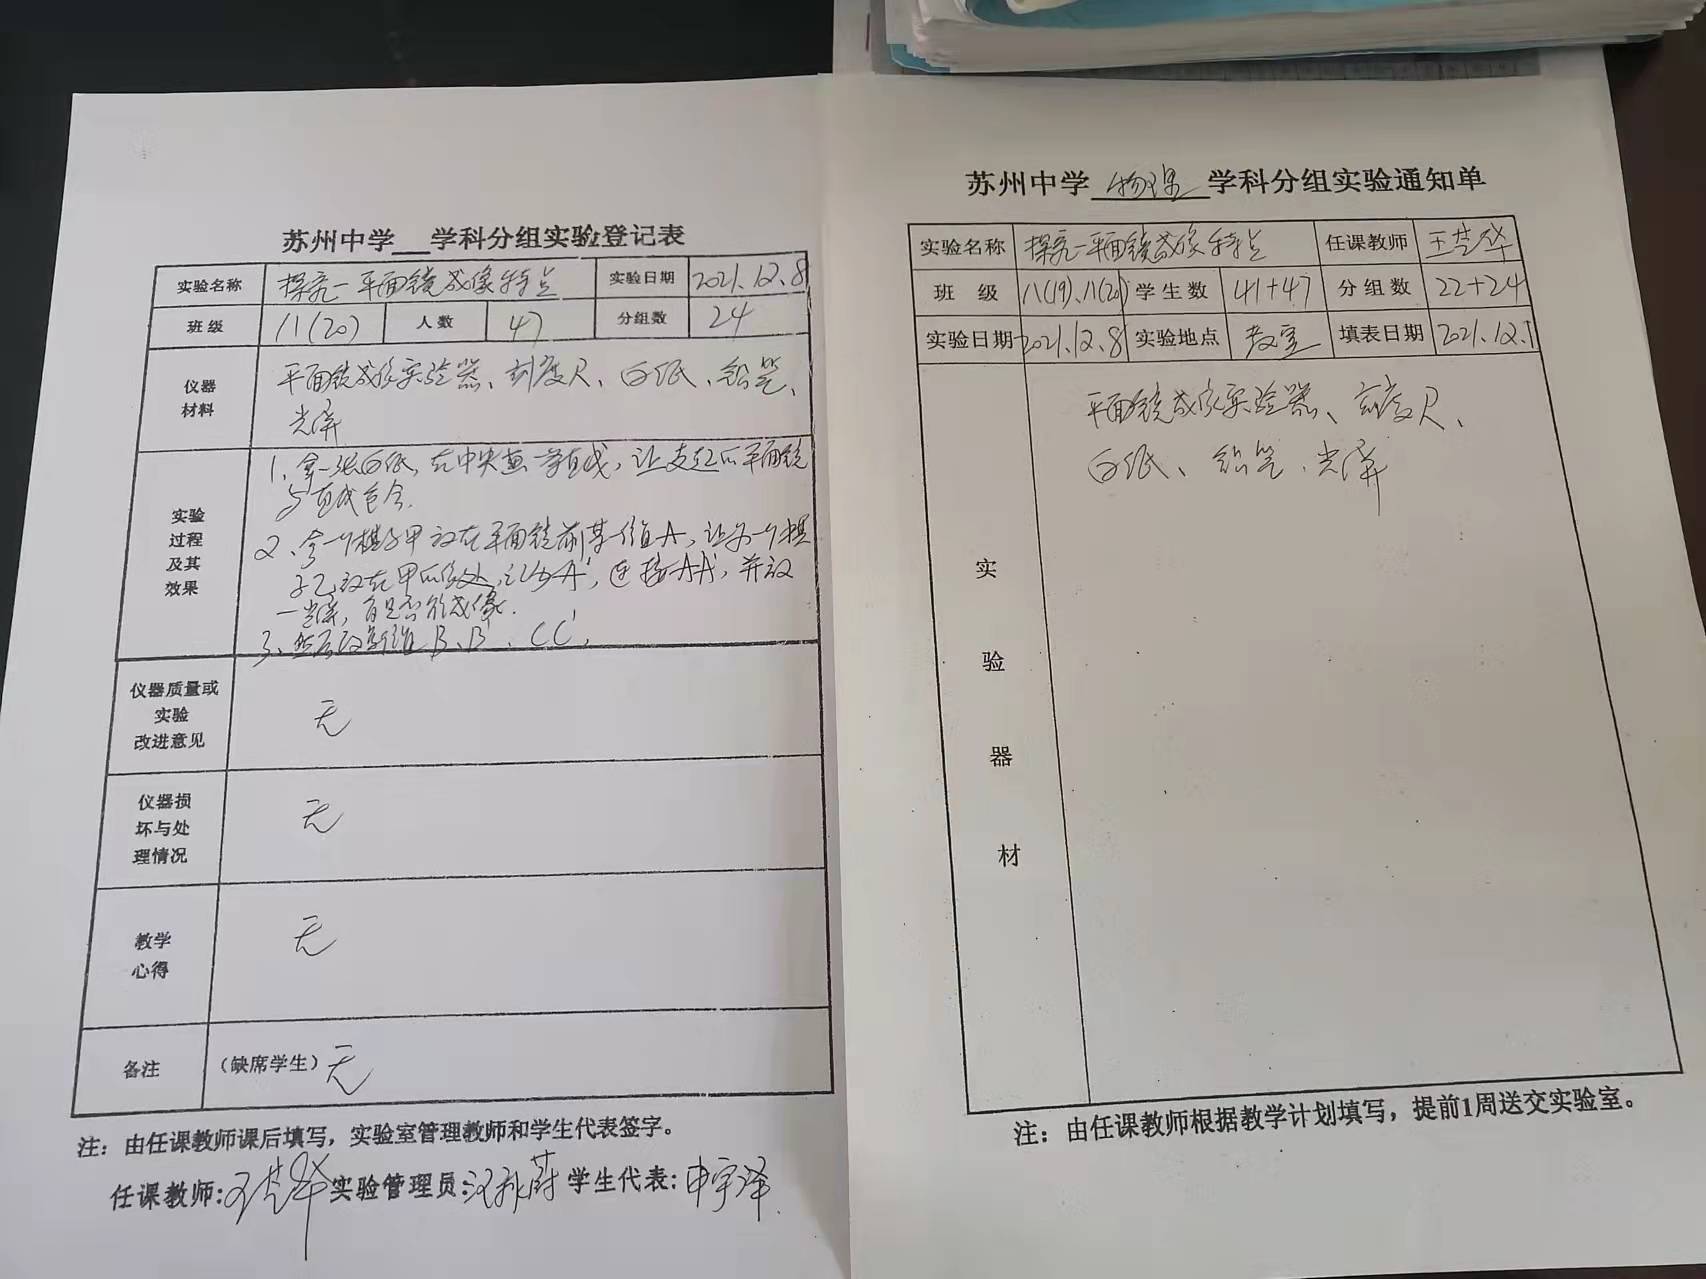 苏州中学 学科分组实验登记表
实验名称 探究一平面镜成像特点 实验日期 2021.12.8
班级 八(20) 人数 47 分组数 24
仪器
材料
平面镜成像实验器、刻度尺、白纸、铅笔、
光屏
实验
过程
及其
效果
1、拿一张白纸,在中央画一条直线,让支起的平面镜
与直线重合.
2、拿一个棋子甲放在平面镜前某一位置A,让另一个棋
子乙放在甲的像处,记为A',连接AA',并放
一光屏,看是否能成像.
3、然后改变位置B、B'、CC'.
仪器质量或
实验
改进意见
无
仪器损
坏与处
理情况
无
教学
心得
无
备注 (缺席学生)无
注：由任课教师课后填写，实验室管理教师和学生代表签字。
任课教师: 实验管理员: 学生代表:申宇泽
苏州中学 物理 学科分组实验通知单
实验名称 探究一平面镜成像特点 任课教师
班 级 八(19)、八(20) 学生数 41+47 分组数 22+24
实验日期 2021.12.8 实验地点 教室 填表日期 2021.12.1
实
验
器
材
平面镜成像实验器、刻度尺、
白纸、铅笔、光屏
注：由任课教师根据教学计划填写，提前1周送交实验室。